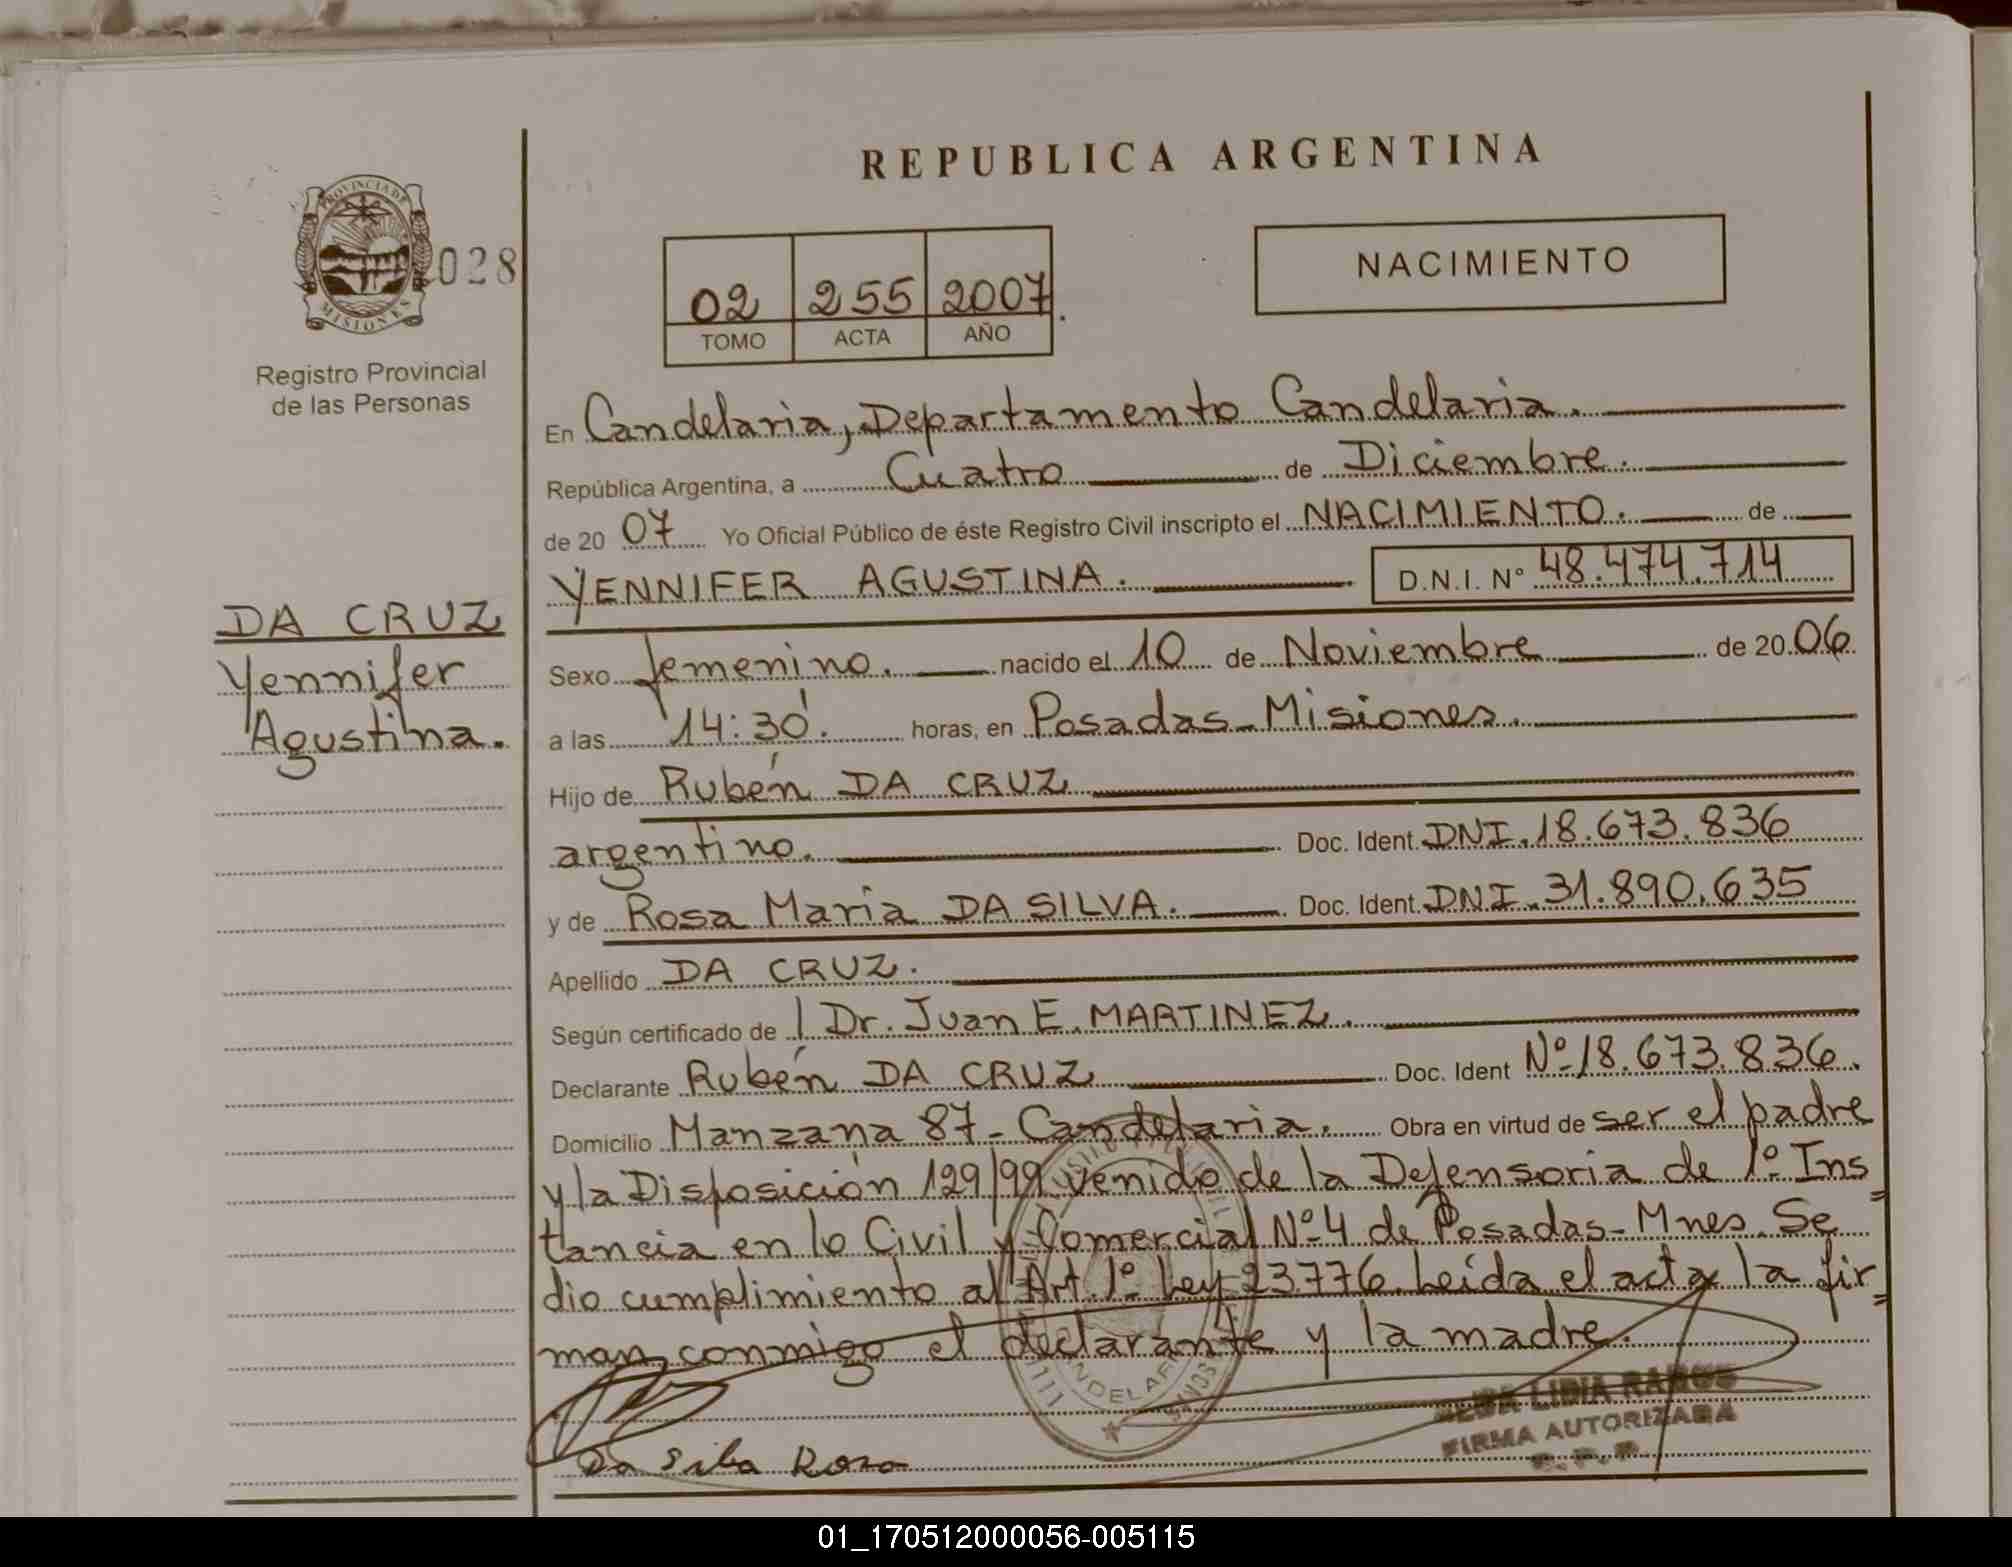 REPUBLICA ARGENTINA
PROVINCIA DE
MISIONES
028
Registro Provincial
de las Personas
NACIMIENTO
02 255 2007.
TOMO ACTA AÑO
En Candelaria, Departamento Candelaria.
República Argentina, a Cuatro de Diciembre.
de 2007 Yo Oficial Público de éste Registro Civil inscripto el NACIMIENTO. de
YENNIFER AGUSTINA. D.N.I. Nº 48.474.714
DA CRUZ
Yennifer
Agustina.
Sexo femenino. nacido el 10 de Noviembre de 2006.
a las 14:30'. horas, en Posadas-Misiones.
Hijo de Rubén DA CRUZ
argentino. Doc. Ident. DNI.18.673.836
y de Rosa Maria DA SILVA. Doc. Ident. DNI.31.890.635
Apellido DA CRUZ.
Según certificado de Dr. Juan E. MARTINEZ.
Declarante Rubén DA CRUZ Doc. Ident Nº 18.673.836.
Domicilio Manzana 87-Candelaria. Obra en virtud de ser el padre
y la Disposición 129/99 venido de la Defensoria de 1º Ins=
tancia en lo Civil y Comercial Nº 4 de Posadas-Mnes. Se
dio cumplimiento al Art. 1º Ley 23776. Leída el acta la fir=
man, conmigo el declarante y la madre.
LIDIA RAMOS
FIRMA AUTORIZADA
Da Silva Rosa
01_170512000056-005115